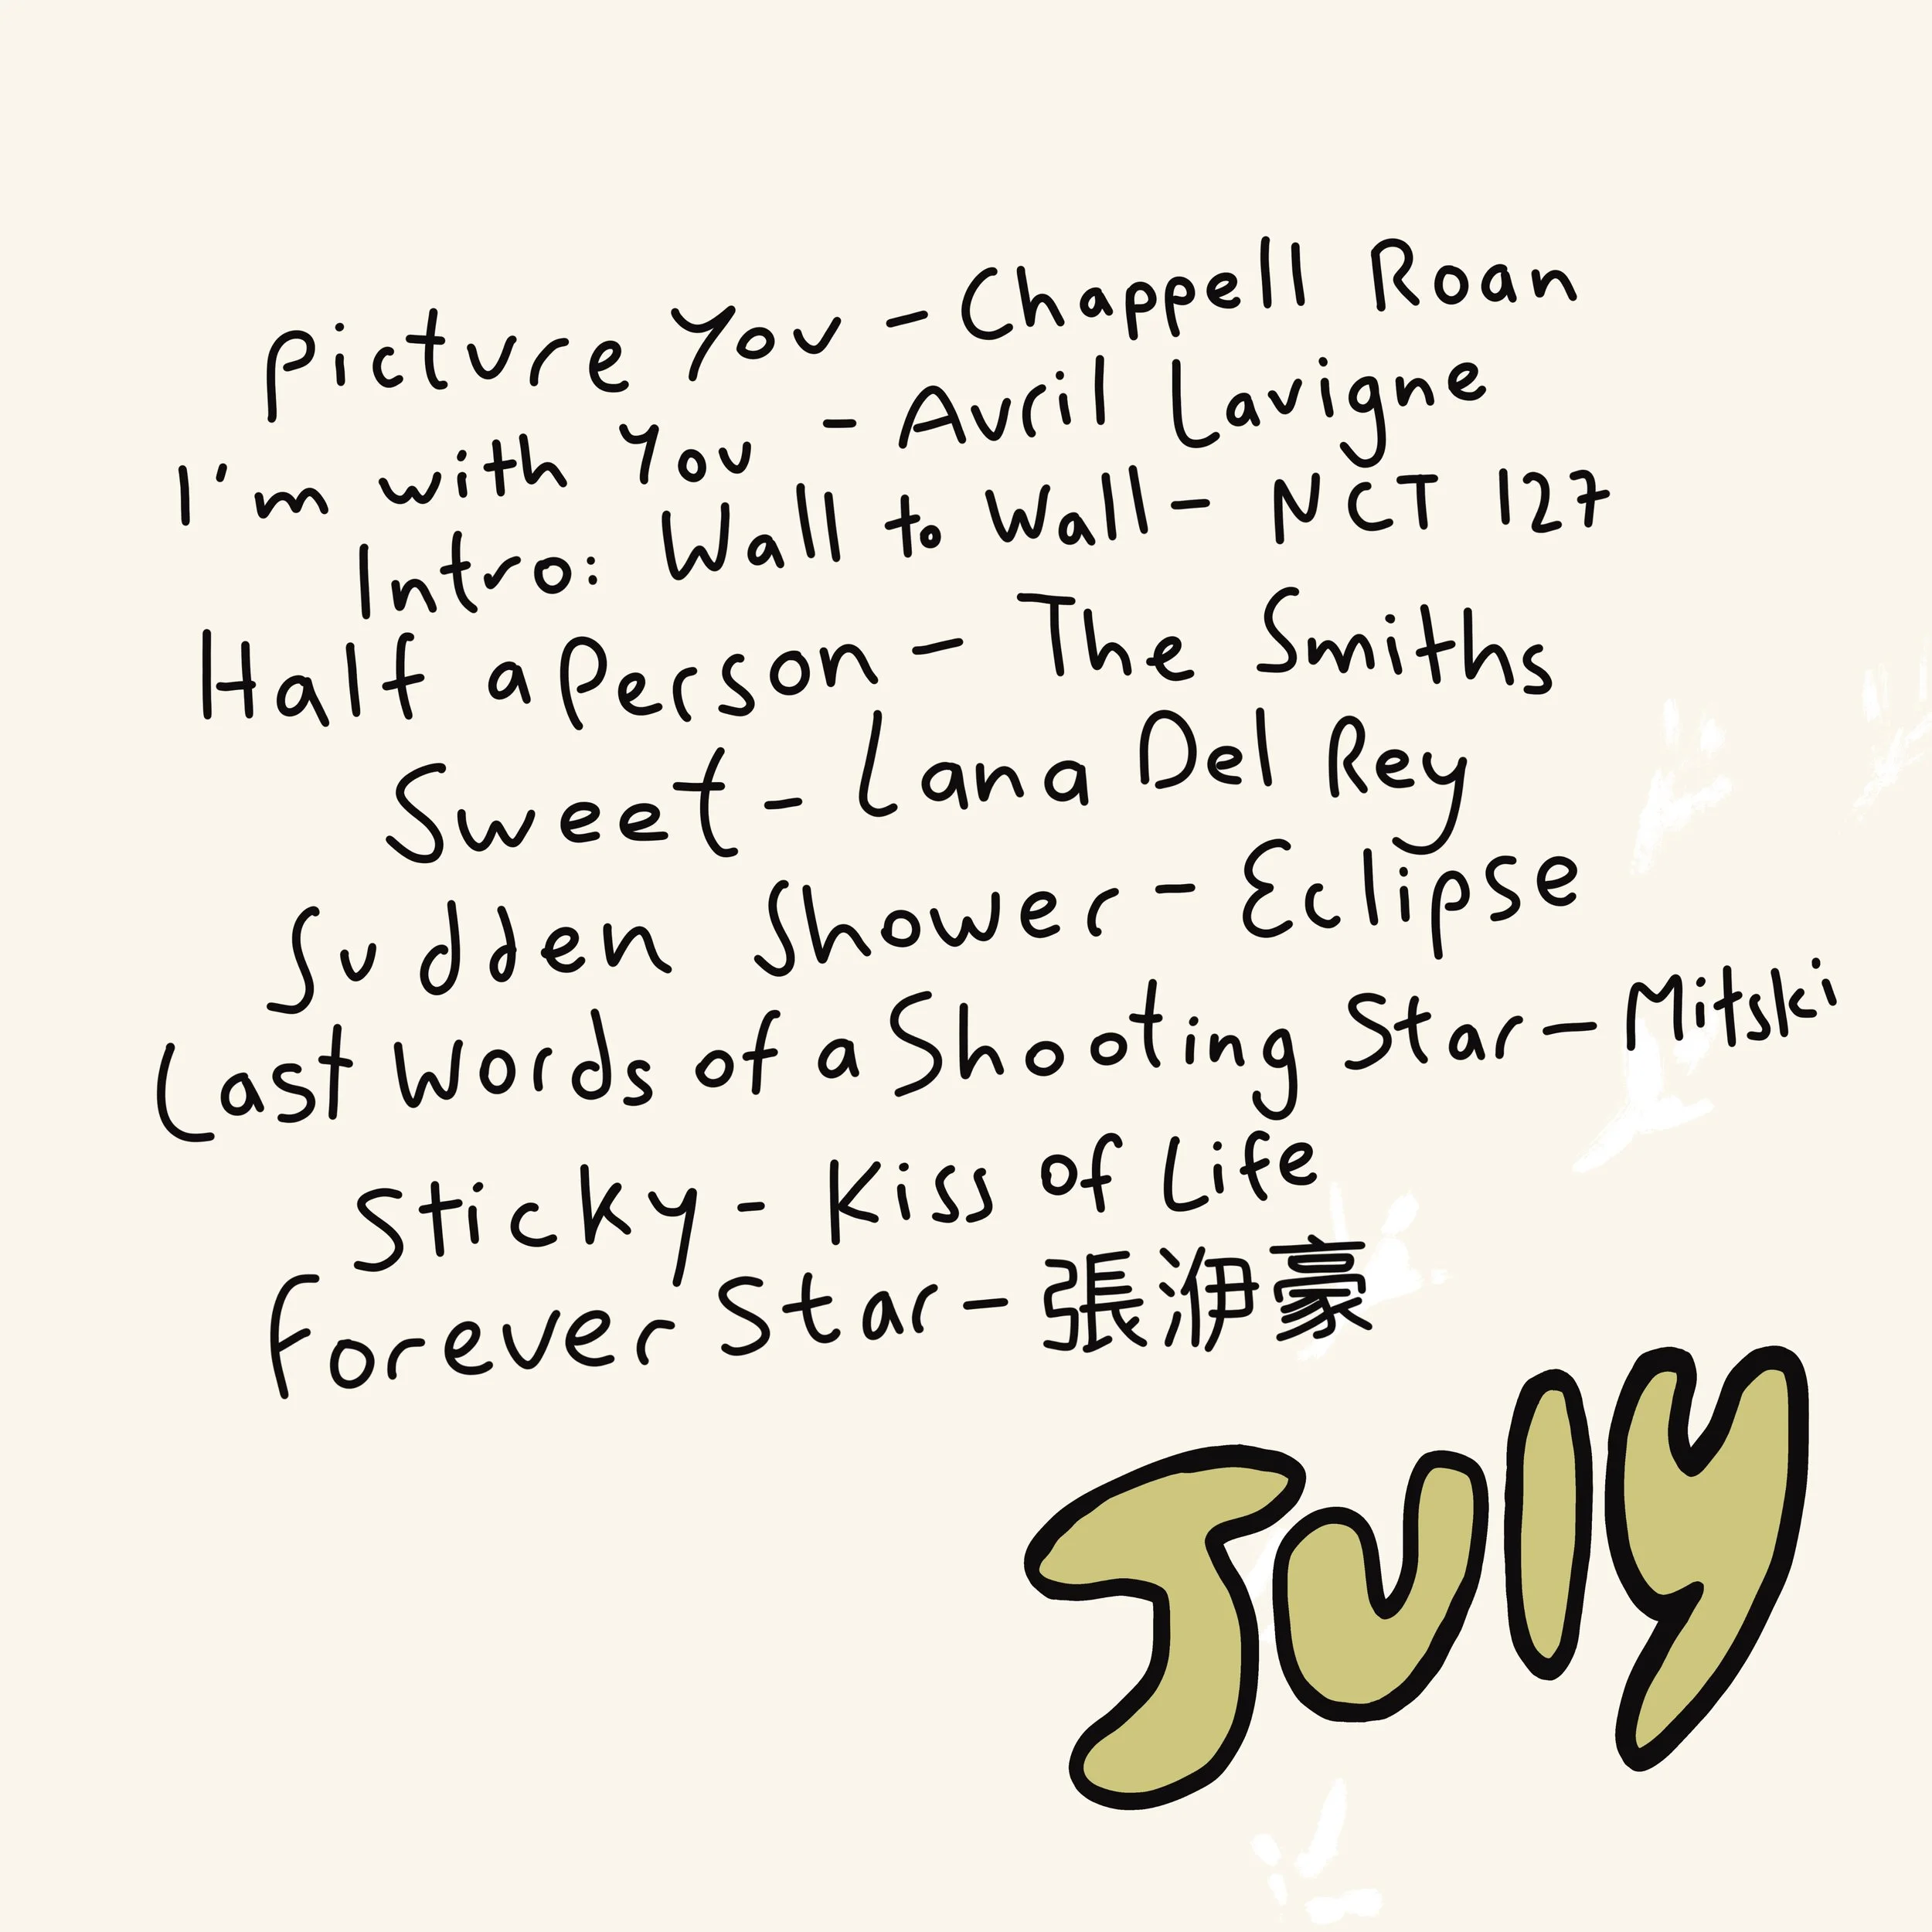 Picture You - Chappell Roan
I'm with You - Avril Lavigne
Intro: Wall to Wall - NCT 127
Half a Person - The Smiths
Sweet - Lana Del Rey
Sudden Shower - Eclipse
Last Words of a Shooting Star - Mitski
Sticky - Kiss of Life
Forever Star - 張洢豪
July